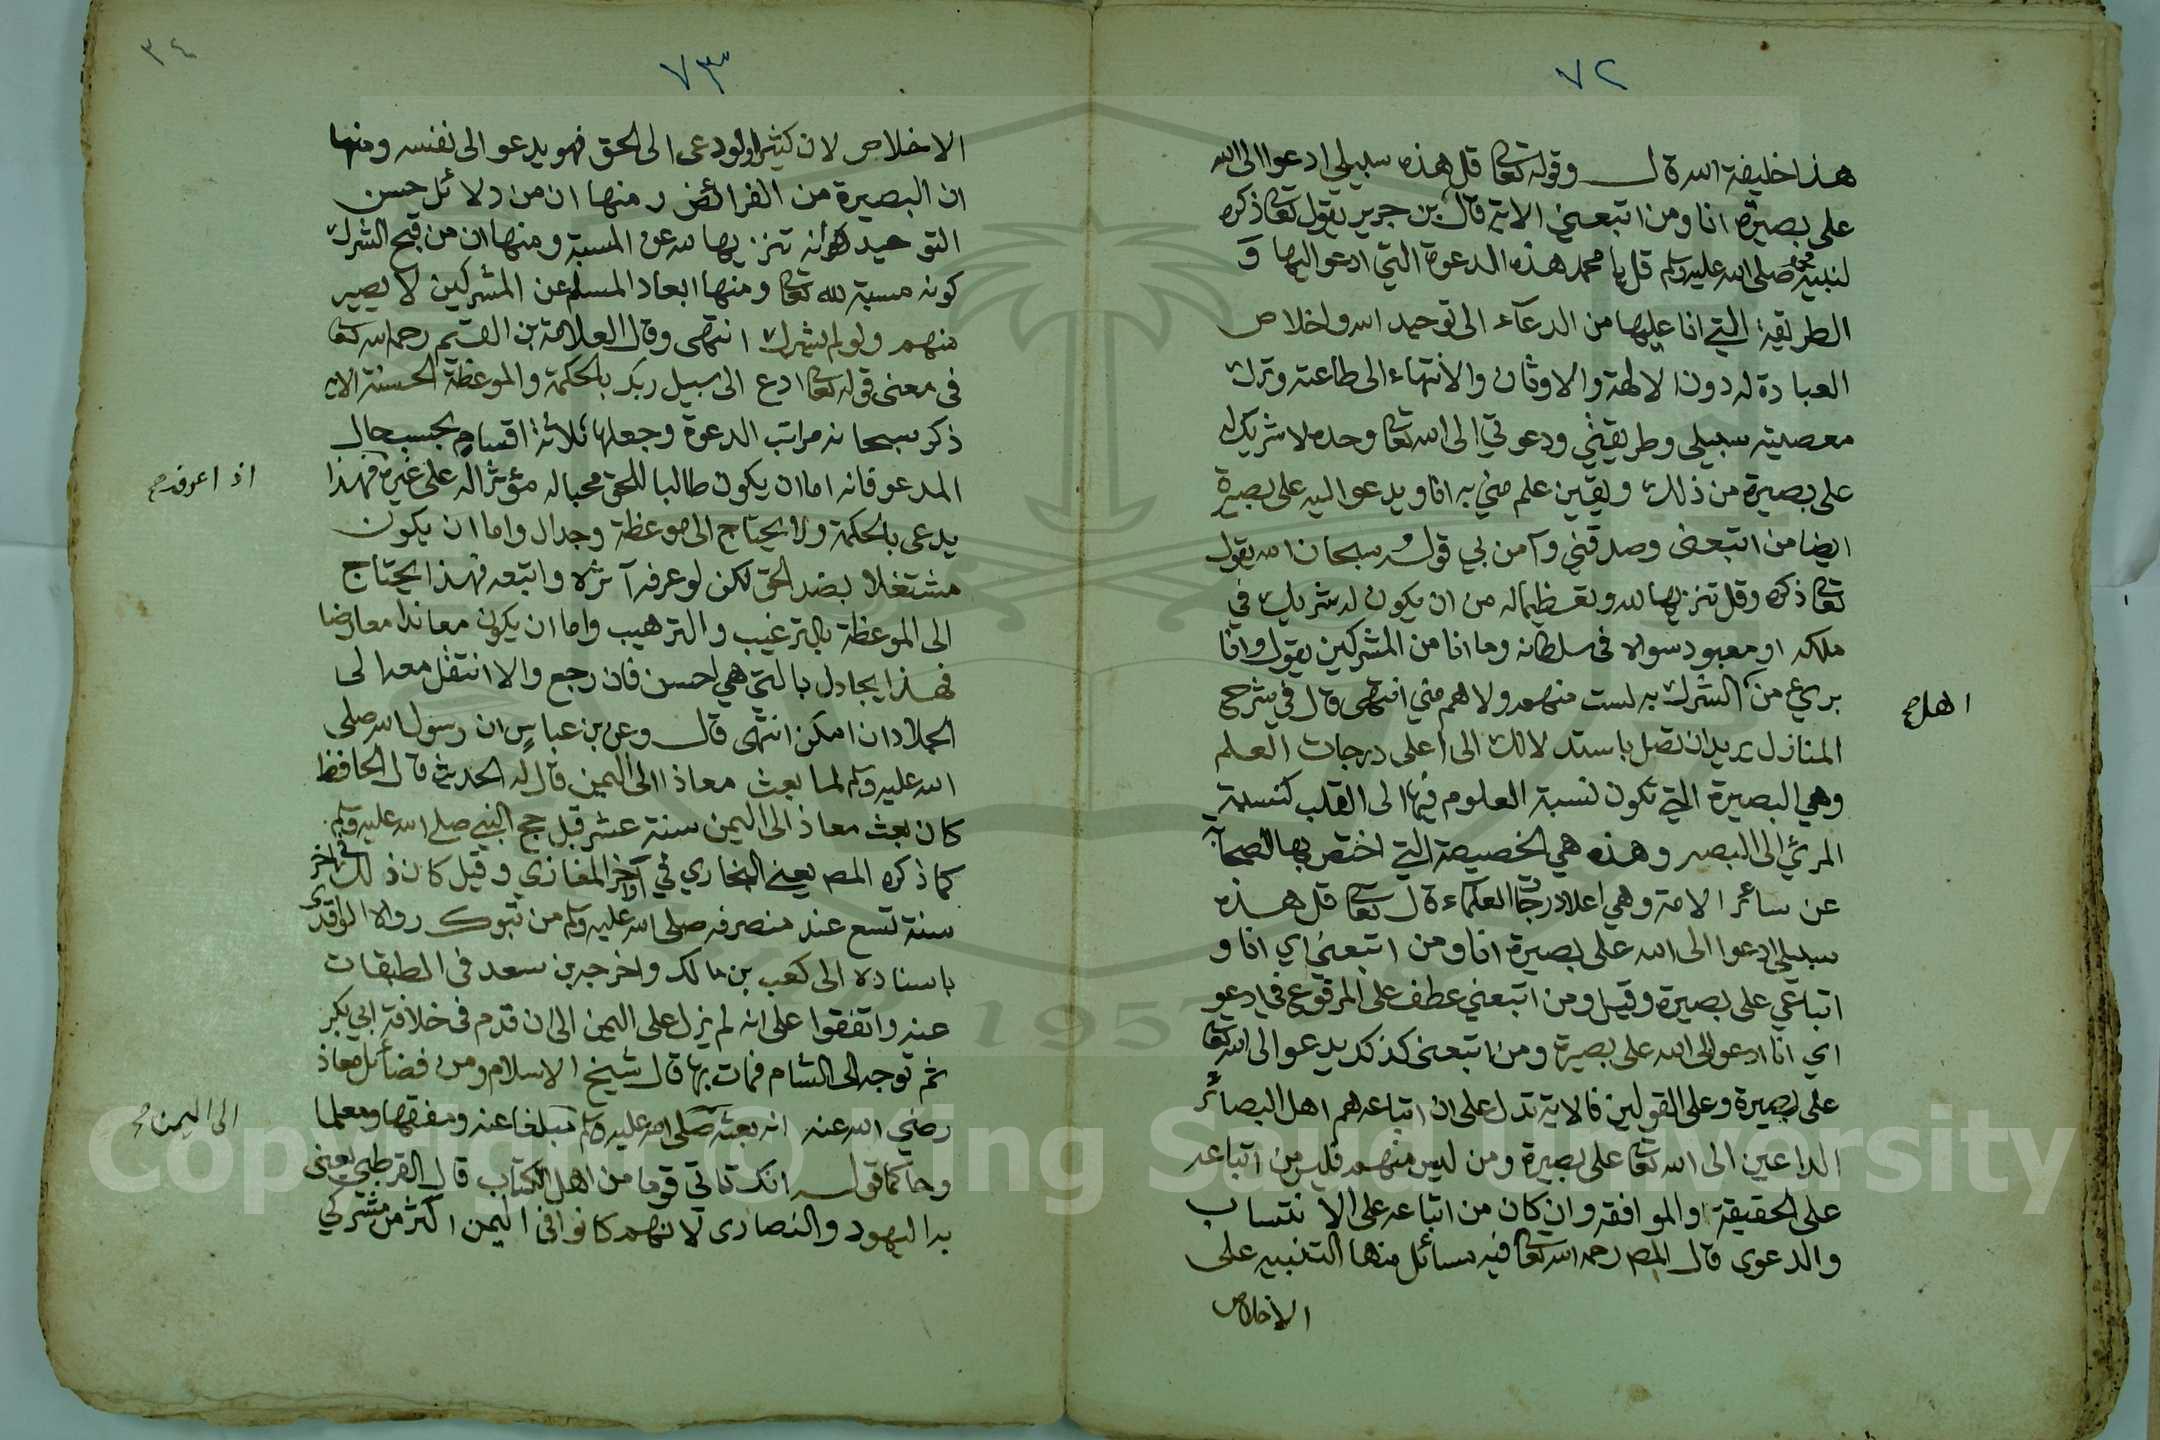 ٧٢
هذا خليفة الله قال وقوله تعا قل هذه سبيلي ادعوا الى الله
على بصيرة انا ومن اتبعني الاية قال بن جرير يقول تعا ذكره
لنبيه محمد صلى الله عليه وسلم قل يا محمد هذه الدعوة التي ادعو اليها و
الطريقة التي انا عليها من الدعآء الى توحيد الله واخلاص
العبادة له دون الالهة والاوثان والانتهاء الى طاعته وترك
معصيته سبيلي وطريقتي ودعوتي الى الله تعا وحده لا شريك له
على بصيرة من ذلك ويقين علم مني به انا ويدعو اليه على بصيرة
ايضا من اتبعني وصدقني وآمن بي قوله سبحان الله يقول
تعا ذكره وقل تنزيها لله وتعظيما له من ان يكون له شريك في
ملكه او معبود سواه في سلطانه وما انا من المشركين يقول وانا
بريء من الشرك به لست منهم ولا هم مني انتهى قال في شرح
اهل صح
المنازل يريد ان تصل باستدلالك الى اعلى درجات العلم
وهي البصيرة التي تكون نسبة العلوم فيها الى القلب كنسبة
المرئي الى البصر وهذه هي الخصيصة التي اختص بها الصحابة
عن سائر الامة وهي اعلا درجات العلماء قال تعا قل هذه
سبيلي ادعوا الى الله على بصيرة انا ومن اتبعني اي انا و
اتباعي على بصيرة وقيل ومن اتبعني عطف على المرفوع في ادعو
اي انا ادعو الى الله على بصيرة ومن اتبعني كذلك يدعو الى الله تعا
على بصيرة وعلى القولين فالاية تدل على ان اتباعه هم اهل البصائر
الداعين الى الله تعا على بصيرة ومن ليس منهم فليس من اتباعه
على الحقيقة والموافقه وان كان من اتباعه على الانتساب
والدعوى قال المص رحمه الله تعا فيه مسائل منها التنبيه على
الاخلاص
٧٣
٣٤
الاخلاص لان كثيرا ولو دعى الى الحق فهو يدعو الى نفسه ومنها
ان البصيرة من الفرائض ومنها ان من دلائل حسن
التوحيد انه تنزيها لله عن المسبة ومنها ان من قبح الشرك
كونه مسبة لله تعا ومنها ابعاد المسلم عن المشركين لا يصير
منهم ولو لم يشرك انتهى وقال العلامة بن القيم رحمه الله تعا
في معنى قوله تعا ادع الى سبيل ربك بالحكمة والموعظة الحسنة الاية
ذكر سبحانه مراتب الدعوة وجعلها ثلاثة اقسام بحسب حال
المدعو فانه اما ان يكون طالبا للحق محبا له مؤثرا له على غيره فهذا
اذا عرفه صح
يدعى بالحكمة ولا يحتاج الى موعظة وجدال واما ان يكون
مشتغلا بضد الحق لكن لو عرفه آثره واتبعه فهذا يحتاج
الى الموعظة بالترغيب والترهيب واما ان يكون معاندا معارضا
فهذا يجادل بالتي هي احسن فان رجع والا انتقل معه الى
الجلاد ان امكن انتهى قال وعن بن عباس ان رسول الله صلى
الله عليه وسلم لما بعث معاذا الى اليمن قال له الحديث قال الحافظ
كان بعث معاذ الى اليمن سنة عشر قبل حج النبي صلى الله عليه وسلم
كما ذكره المص يعني البخاري في آخر المغازي وقيل كان ذلك في اخر
سنة تسع عند منصرفه صلى الله عليه وسلم من تبوك رواه الواقدي
باسناده الى كعب بن مالك واخرجه بن سعد في الطبقات
عنه واتفقوا على انه لم يزل على اليمن الى ان قدم في خلافة ابي بكر
ثم توجه الى الشام فمات بها قال شيخ الاسلام ومن فضائل معاذ
رضي الله عنه انه بعثه صلى الله عليه وسلم مبلغا عنه ومفقها ومعلما
الى اليمن صح
وحاكما قوله انك تاتي قوما من اهل الكتاب قال القرطبي يعني
به اليهود والنصارى لانهم كانوا في اليمن اكثر من مشركي
1957
Copyright © King Saud University